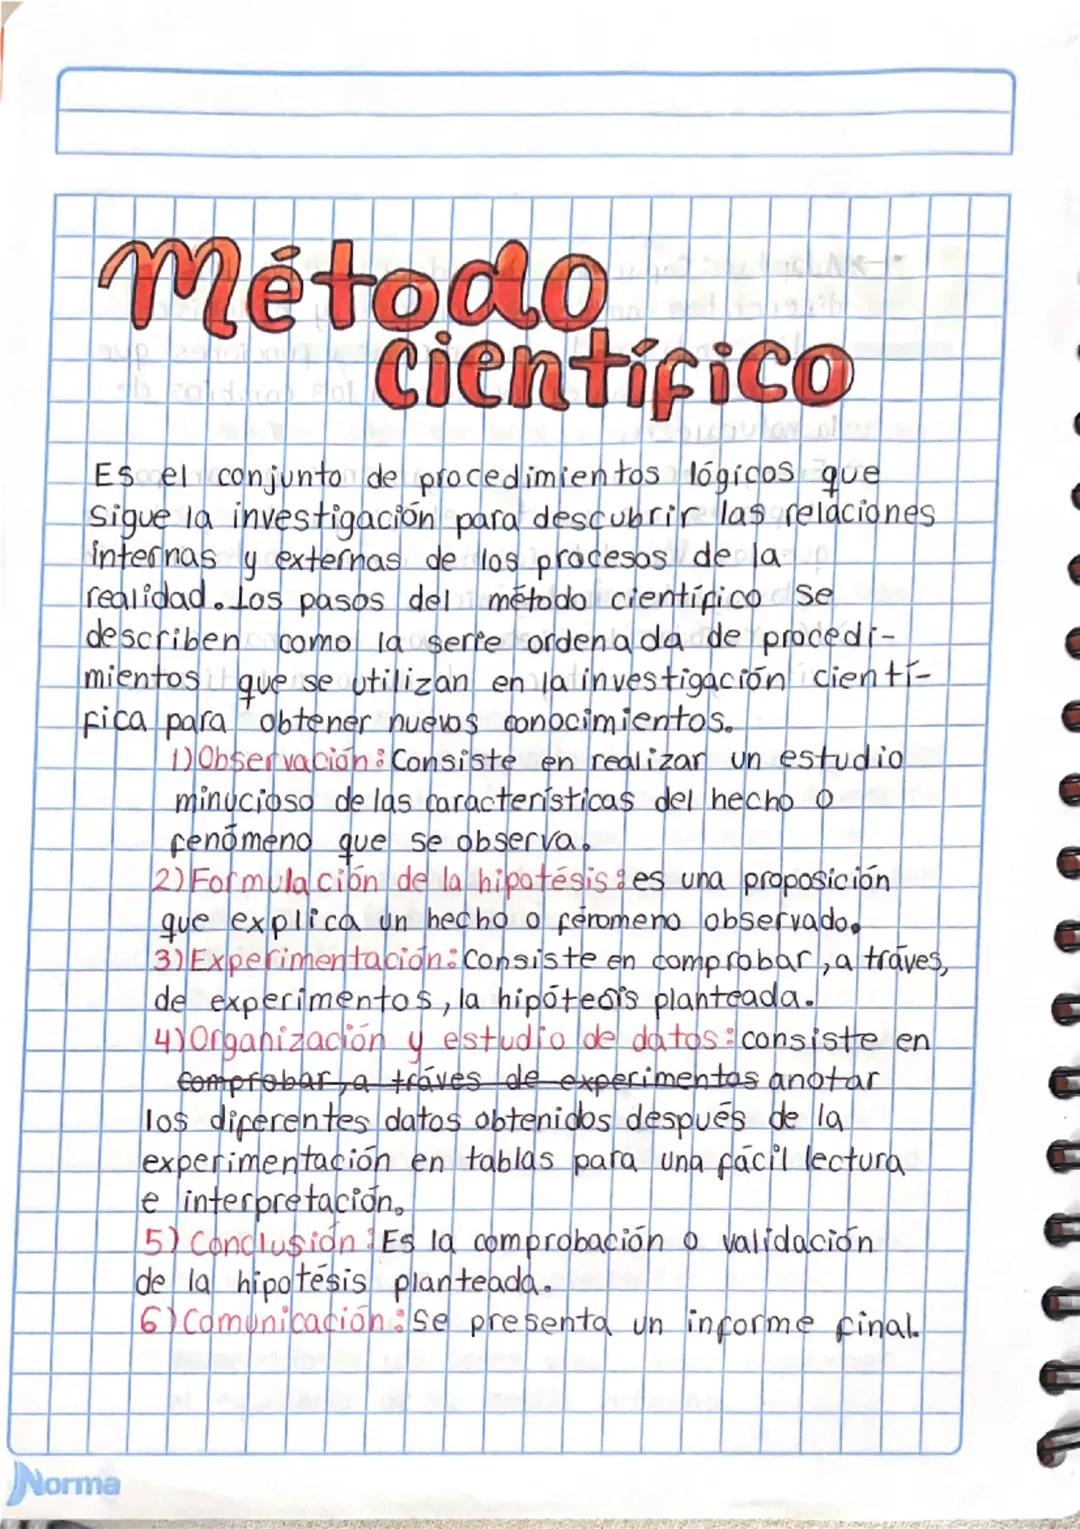 Método
científico
Es el conjunto de procedimientos lógicos que
sigue la investigación para descubrir las relaciones
internas y externas de los procesos de la
realidad. Los pasos del método científico se
describen como la serie ordenada de procedi-
mientos que se utilizan en la investigación cientí-
fica para obtener nuevos conocimientos.
1) Observación: Consiste en realizar un estudio
minucioso de las características del hecho o
fenómeno que se observa.
2) Formulación de la hipotésis: es una proposición
que explica un hecho o féromeno observado.
3) Experimentación: Consiste en comprobar, a tráves,
de experimentos, la hipótesis planteada.
4) Organización y estudio de datos: consiste en
comprobar, a tráves de experimentos anotar
los diferentes datos obtenidos después de la
experimentación en tablas para una fácil lectura
e interpretación.
5) Conclusión: Es la comprobación o validación
de la hipotésis planteada.
6) Comunicación: Se presenta un informe final.
Norma